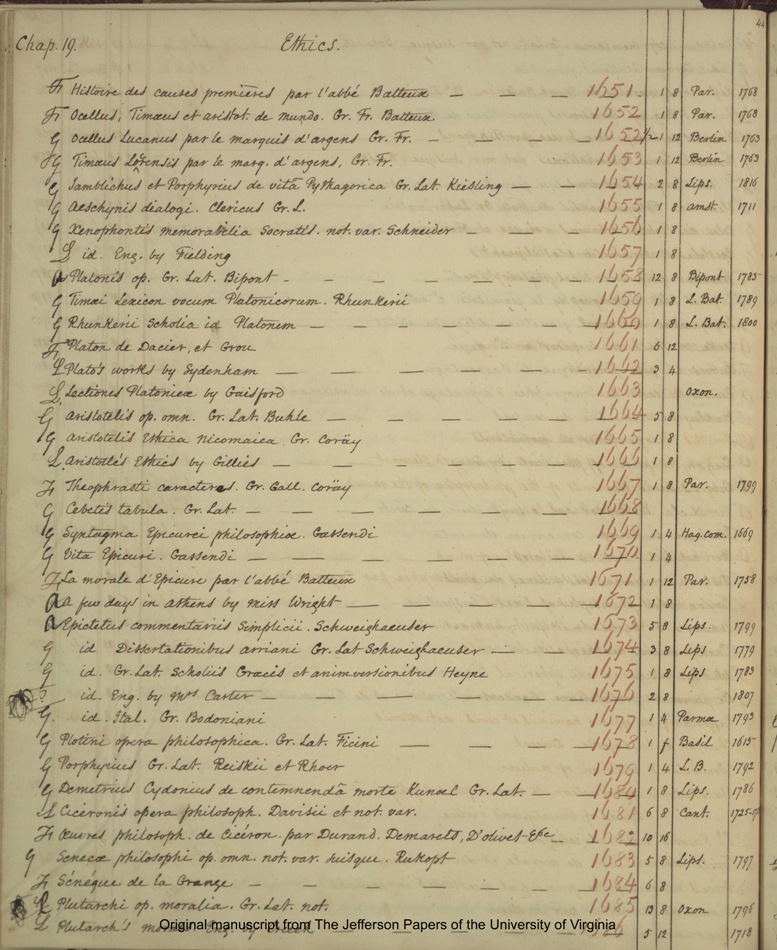 44
Chap. 19. Ethics.
Fr Histoire des causes premieres par l'abbé Batteux — — — 1651. 1 8 Par. 1768
Fr Ocellus, Timaeus et aristot. de mundo. Gr. Fr. Batteux 1652 1 8 Par. 1768
G Ocellus Lucanus par le marquis d'argens Gr. Fr. — — — — 1652 1/2 1 12 Berlin 1763
G Timaeus Locrensis par le marq. d'argens, Gr. Fr. 1653 1 12 Berlin 1763
G Jamblichus et Porphyrius de vitâ Pythagorica Gr. Lat. Kiesling — — 1654 2 8 Lips. 1816
G Aeschynis dialogi. Clericus Gr. L. 1655 1 8 amst. 1711
G Xenophontis memorabilia Socratis. not. var. Schneider — — — 1656 1 8
L id. Eng. by Fielding 1657 1 8
Platonis op. Gr. Lat. Bipont — — — — — — 1658 12 8 Bipont 1785
G Timaei Lexicon vocum Platonicorum. Rhunkerii 1659 1 8 L. Bat. 1789
G Rhunkerii Scholia id Platonem — — — — — — 1660 1 8 L. Bat. 1800
Fr Platon de Dacier, et Grou 1661 6 12
L Plato's works by Sydenham — — — — — — — 1662 3 4
L Lectiones Platonicae by Gaisford 1663 Oxon.
G Aristotelis op. omn. Gr. Lat. Buhle — — — — — 1664 5 8
G Aristotelis Ethica nicomaica Gr. Coräy 1665 1 8
L Aristotle's Ethics by Gillies — — — — — — 1666 1 8
Fr Theophrasti caracteres. Gr. Gall. Coräy 1667 1 8 Par. 1799
G Cebetis tabula. Gr. Lat. — — — — — — 1668
G Syntagma Epicurei philosophiae. Gassendi 1669 1 4 Hag. com. 1669
G Vita Epicuri. Gassendi — — — — — — 1670 1 4
La morale d'Epicure par l'abbé Batteux 1671 1 12 Par. 1758
A few days in Athens by Miss Wright — — — — — 1672 1 8
Epictetus commentariis Simplicii. Schweighaeuser 1673 5 8 Lips. 1799
G id Dissertationibus arriani Gr. Lat Schweighaeuser — — — 1674 3 8 Lips 1779
G id. Gr. Lat. Scholiis Graecis et animversionibus Heyne 1675 1 8 Lips 1783
id. Eng. by Mrs Carter — — — — — — 1676 2 8 1807
G. id. Ital. Gr. Bodoniani 1677 1 4 Parmae 1793
G Plotini opera philosophica. Gr. Lat. Ficini — — — — — 1678 1 f Basil 1615
G Porphyrius Gr. Lat. Reiskii et Rhoer 1679 1 4 L. B. 1792
G Demetrius Cydonius de contemnendâ morte Kuncel Gr. Lat. — — 1680 1 8 Lips. 1786
L Ciceronis opera philosoph. Davisii et not. var. 1681 6 8 Cant.
Fr Oeuvres philosoph. de Cicéron. par Durand. Demarets, D'olivet &c — 1682 10 16
G Senecae philosophi op. omn. not. var. suisque. Rukopf 1683 5 8 Lips. 1797
Fr Sénéque de la Grange — — — — — — — 1684 6 8
Plutarchi op. moralia. Gr. Lat. not. 1685 13 8 Oxon 1796
L Plutarch's 5 12 1718
Original manuscript from The Jefferson Papers of the University of Virginia